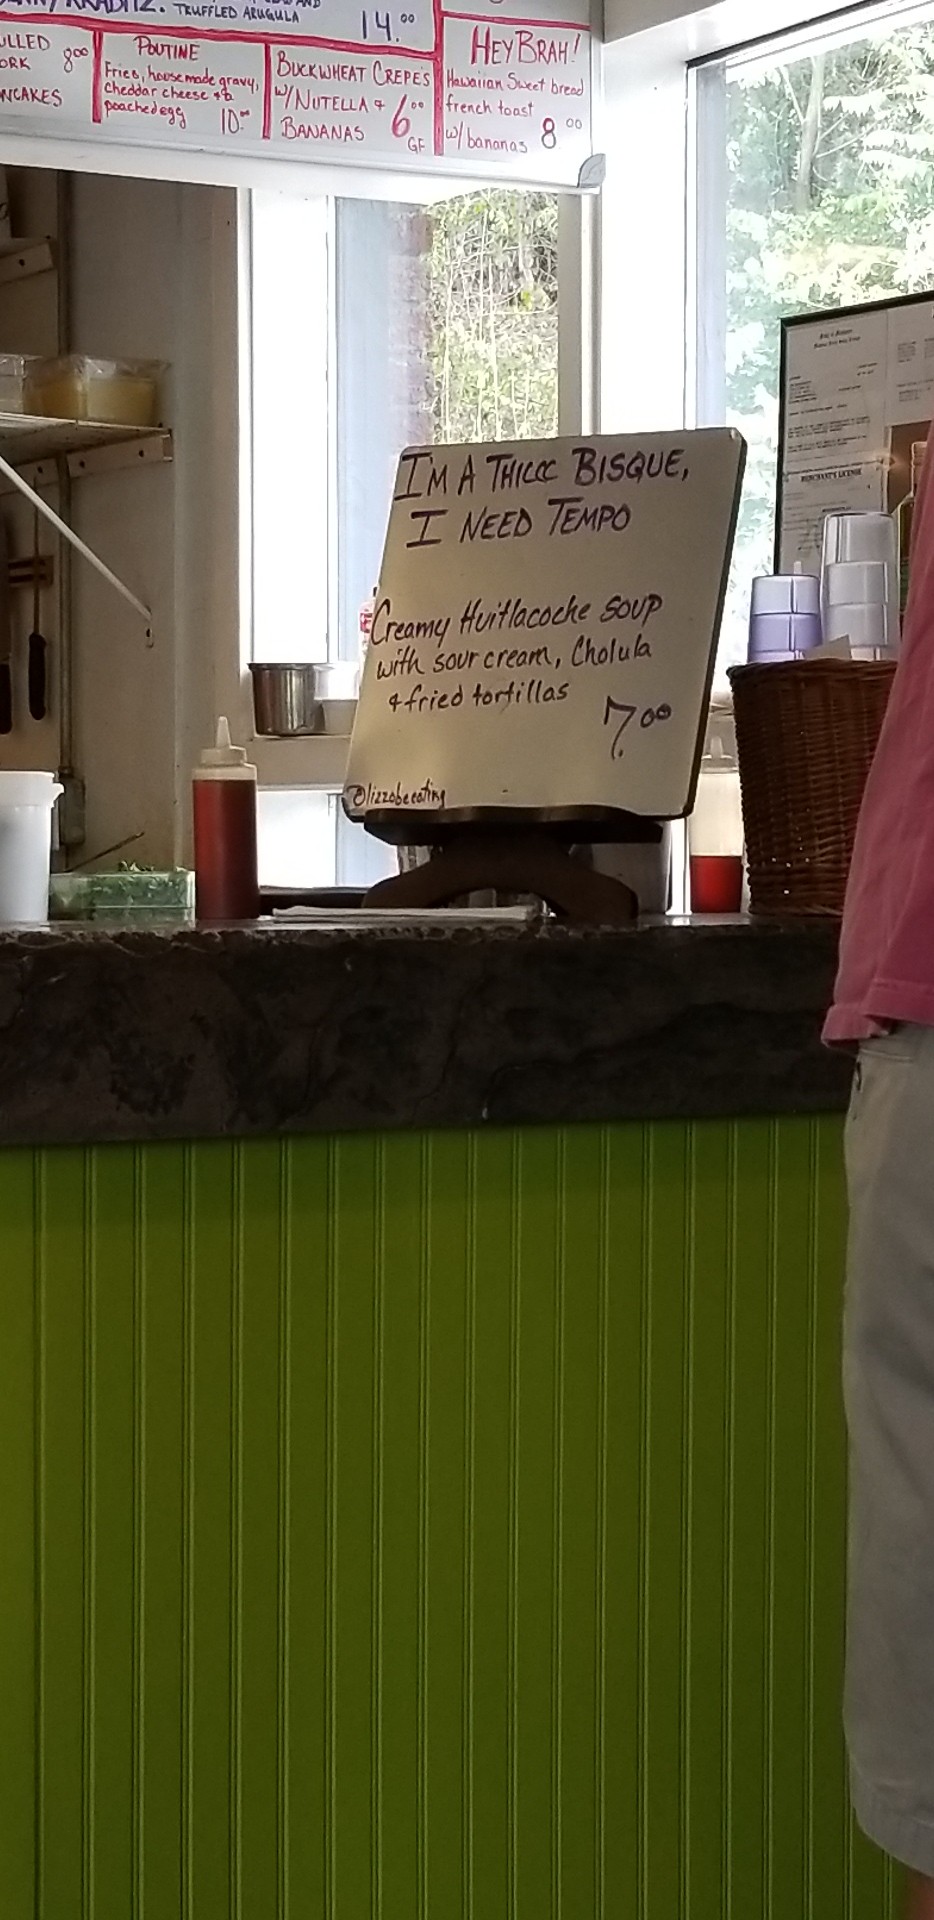 TRUFFLED ARUGULA
14.00
8.00
POUTINE
Fries, housemade gravy,
cheddar cheese + a
poached egg 10.00
BUCKWHEAT CREPES
W/ NUTELLA + 6.00
BANANAS
GF
HEY BRAH!
Hawaiian Sweet bread
french toast
w/ bananas 8.00
I'M A THICCC BISQUE,
I NEED TEMPO
Creamy Huitlacoche soup
with sour cream, Cholula
& fried tortillas
7.00
@lizzobeeating
MERCHANT'S LICENSE